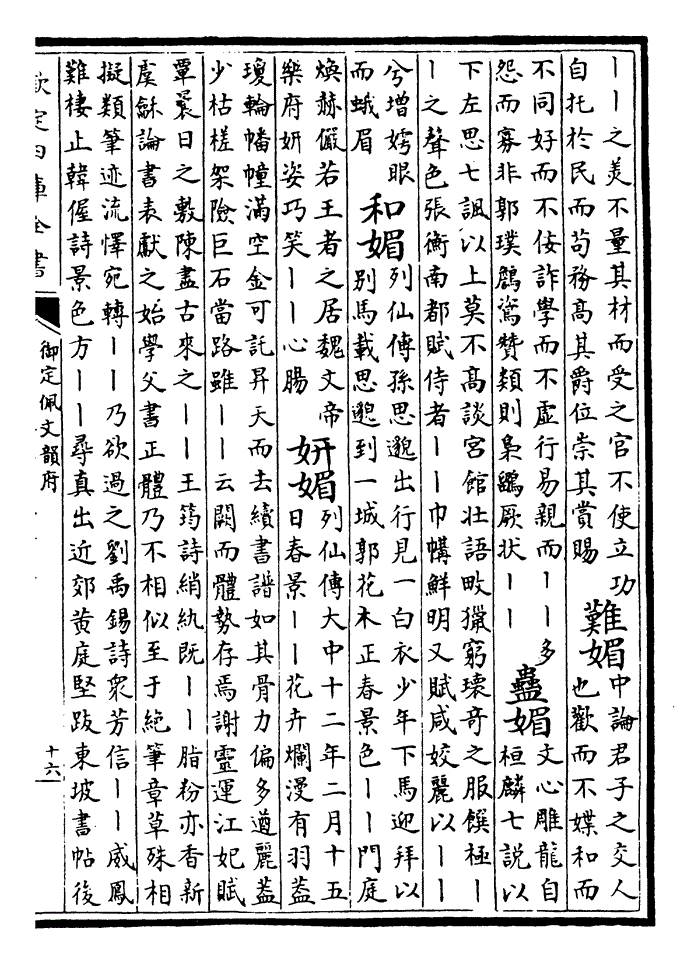 ——之美不量其材而受之官不使立功
自托於民而苟務高其爵位崇其賞賜
難媚
中論君子之交人
也歡而不媟和而
不同好而不佞詐學而不虛行易親而——多
怨而寡非郭璞鸓鵟贊類則梟鷂厥狀——
蠱媚
文心雕龍自
桓麟七說以
下左思七諷以上莫不高談宮館壯語畋獵窮瓌奇之服饌極—
—之聲色張衡南都賦侍者——巾幘鮮明又賦咸姣麗以——
兮增嫮眼
而蛾眉
和媚
列仙傳孫思邈出行見一白衣少年下馬迎拜以
別馬載思邈到一城郭花木正春景色——門庭
煥赫儼若王者之居魏文帝
樂府妍姿巧笑——心腸
妍媚
列仙傳大中十二年二月十五
日春景——花卉爛漫有羽蓋
瓊輪幡幢滿空金可託昇天而去續書譜如其骨力偏多遒麗蓋
少枯槎架險巨石當路雖——云闕而體勢存焉謝靈運江妃賦
覃曩日之敷陳盡古來之——王筠詩綃紈既——脂粉亦香新
虞龢論書表獻之始學父書正體乃不相似至于絶筆章草殊相
擬類筆迹流懌宛轉——乃欲過之劉禹錫詩衆芳信——威鳳
難棲止韓偓詩景色方——尋真出近郊黄庭堅跋東坡書帖後
欽定四庫全書
御定佩文韻府
十六